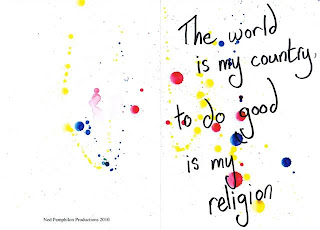 The world
is my country,
to do good
is my
religion
Ned Pamphilon Productions 2010